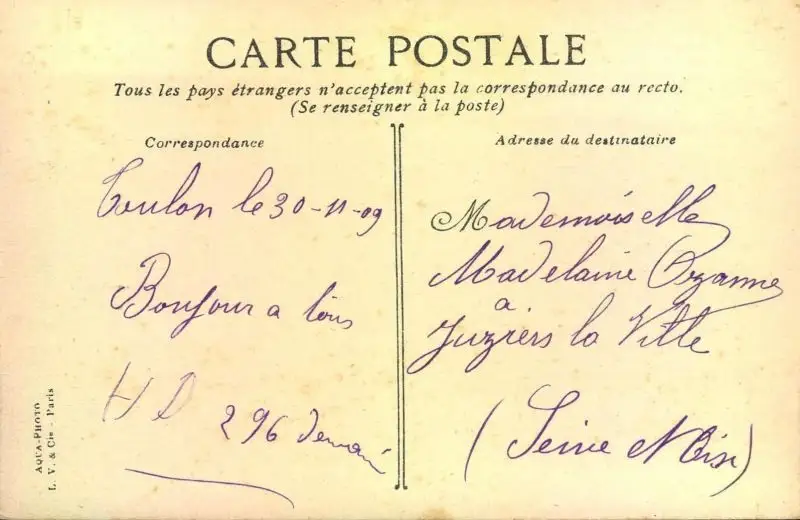 CARTE POSTALE
Tous les pays étrangers n'acceptent pas la correspondance au recto.
(Se renseigner à la poste)
Correspondance
Toulon le 30-11-09
Bonjour a tous
H D
296 demani
Adresse du destinataire
Mademoiselle
Madelaine Ozanne
a
Juziers la Ville
(Seine et Oise)
AQUA-PHOTO
L. V. & Cie - Paris